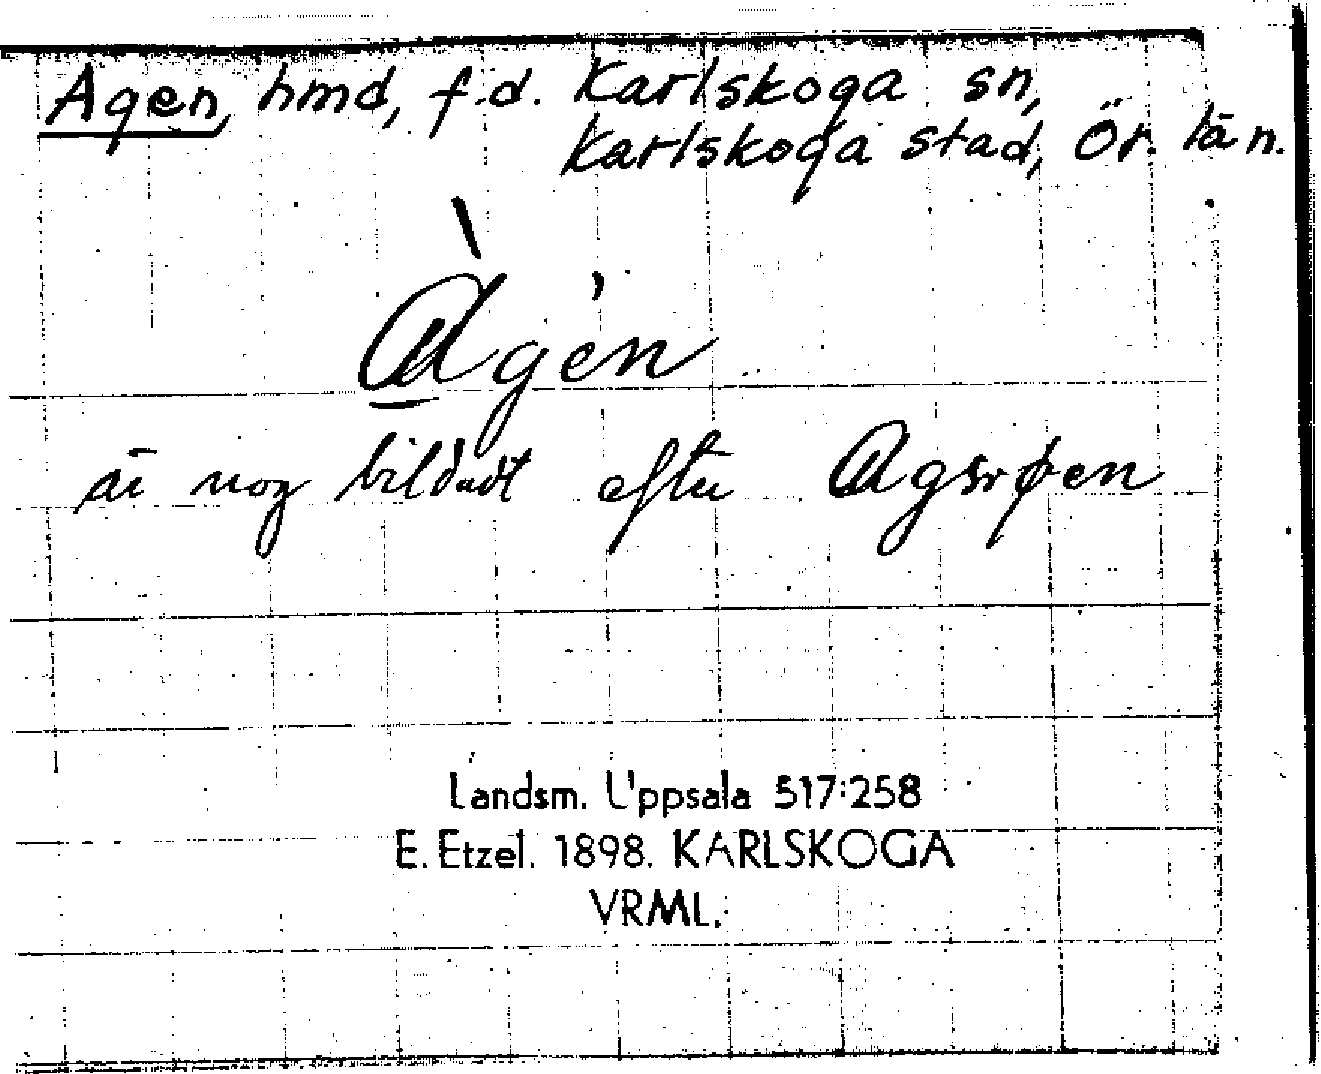 Agen, hmd, f.d. Karlskoga sn,
Karlskoga stad, Ör. län.
Àgèn
är nog bildadt efter Agsrøen
Landsm. Uppsala 517:258
E. Etzel. 1898. KARLSKOGA
VRML.